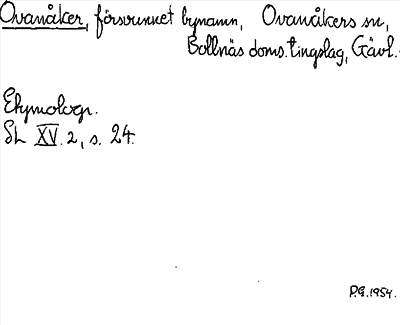 Ovanåker, försvunnet bynamn, Ovanåkers sn,
Bollnäs doms. tingslag, Gävl.
Etymologi.
SL XV. 2, s. 24.
P.G. 1954.